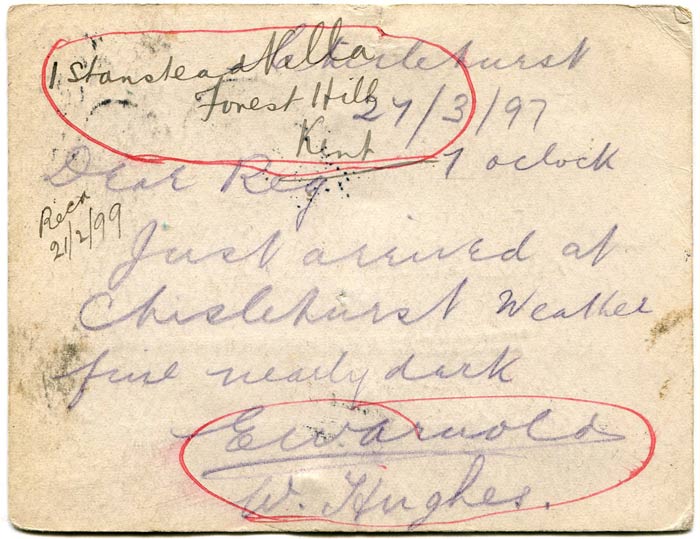 Chislehurst
1 Stanstead Villa
Forest Hill
Kent
27/3/97
7 oclock
Dear Reg
Recd
21/2/99
Just arrived at
Chislehurst Weather
fine nearly dark
EW Arnold
W. Hughes.